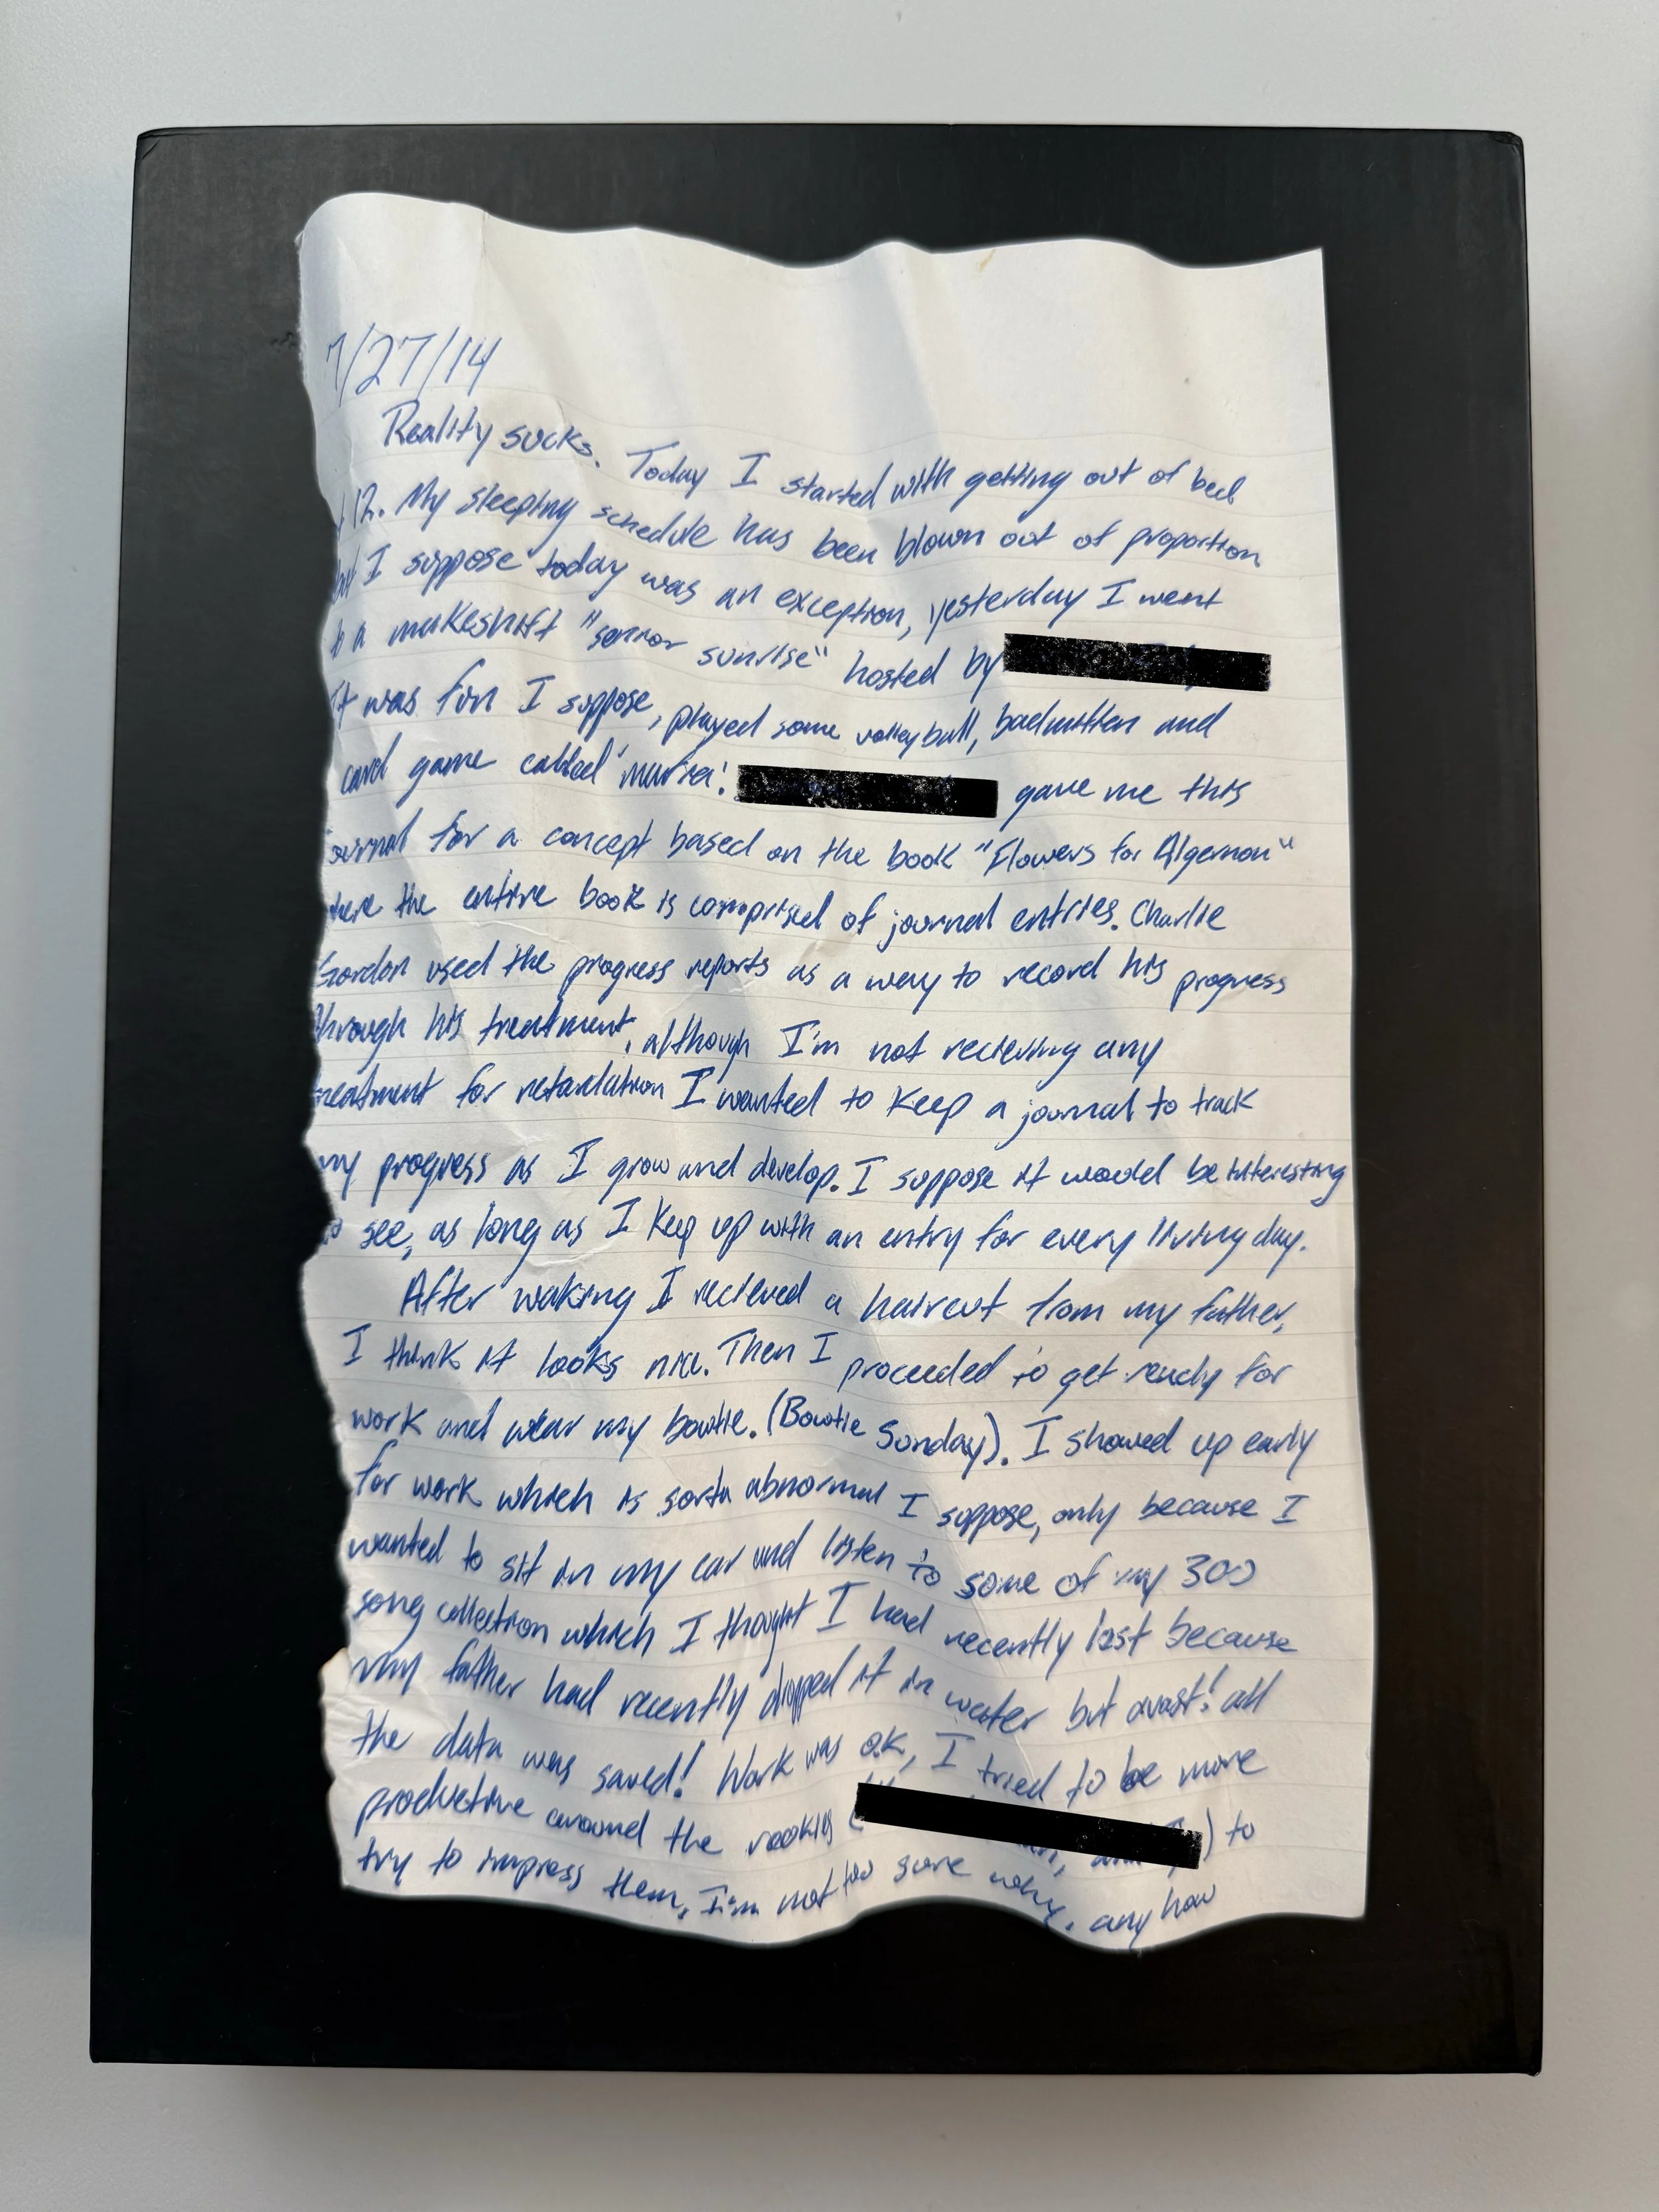 7/27/14
Reality sucks. Today I started with getting out of bed
12. My sleeping schedule has been blown out of proportion
but I suppose today was an exception, yesterday I went
to a makeshift "senior sunrise" hosted by
It was fun I suppose, played some volleyball, badmitten and
card game called 'mafia'. gave me this
journal for a concept based on the book "Flowers for Algernon"
where the entire book is comprised of journal entries. Charlie
Gordon used the progress reports as a way to record his progress
through his treatment, although I'm not recieving any
treatment for retardation I wanted to keep a journal to track
my progress as I grow and develop. I suppose it would be interesting
to see, as long as I keep up with an entry for every living day.
After waking I recieved a haircut from my father,
I think it looks nice. Then I proceeded to get ready for
work and wear my bowtie. (Bowtie Sunday). I showed up early
for work which is sorta abnormal I suppose, only because I
wanted to sit in my car and listen to some of my 300
song collection which I thought I had recently lost because
my father had recently dropped it in water but avast! all
the data was saved! Work was o.k, I tried to be more
productive around the rookies ( ) to
try to impress them, I'm not too sure why. any how